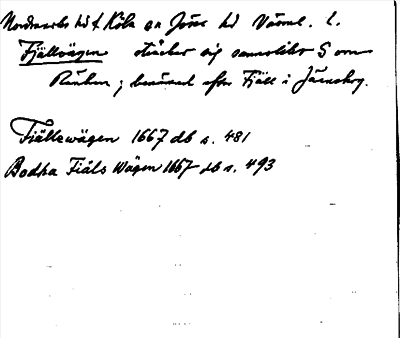 Nordmarks hd f. Köla sn Jösse hd Värml. l.
Fjällvägen sträcker sig sannolikt S om
Räken; benämnd efter Fjäll i Järnskog.
Fiällewägen 1667 db s. 481
Bodha Fiäls Wägen 1667 db s. 493